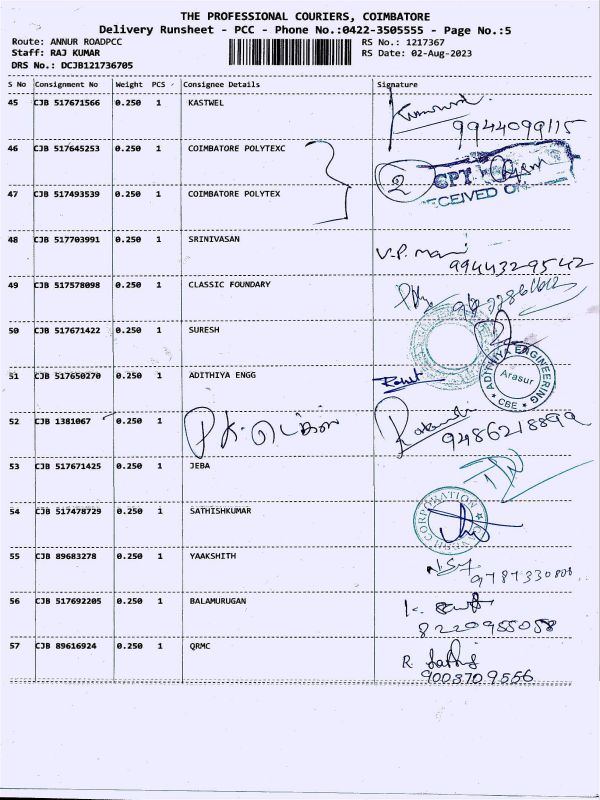 THE PROFESSIONAL COURIERS, COIMBATORE
Delivery Runsheet - PCC - Phone No.:0422-3505555 - Page No.:5
Route: ANNUR ROADPCC RS No.: 1217367
Staff: RAJ KUMAR RS Date: 02-Aug-2023
DRS No.: DCJB121736705
S No Consignment No Weight PCS Consignee Details Signature
45 CJB 517671566 0.250 1 KASTWEL
9944099115
46 CJB 517645253 0.250 1 COIMBATORE POLYTEXC
2 CPT
47 CJB 517493539 0.250 1 COIMBATORE POLYTEX
48 CJB 517703991 0.250 1 SRINIVASAN
V.P. mani
9944329542
49 CJB 517578098 0.250 1 CLASSIC FOUNDARY
50 CJB 517671422 0.250 1 SURESH
51 CJB 517650270 0.250 1 ADITHIYA ENGG
ADITHIYA ENGINEERING
Arasur
* CBE *
52 CJB 1381067 0.250 1
9486218899
53 CJB 517671425 0.250 1 JEBA
54 CJB 517478729 0.250 1 SATHISHKUMAR
CORPORATION
55 CJB 89683278 0.250 1 YAAKSHITH
56 CJB 517692205 0.250 1 BALAMURUGAN
8220955058
57 CJB 89616924 0.250 1 QRMC
R.
9003709556